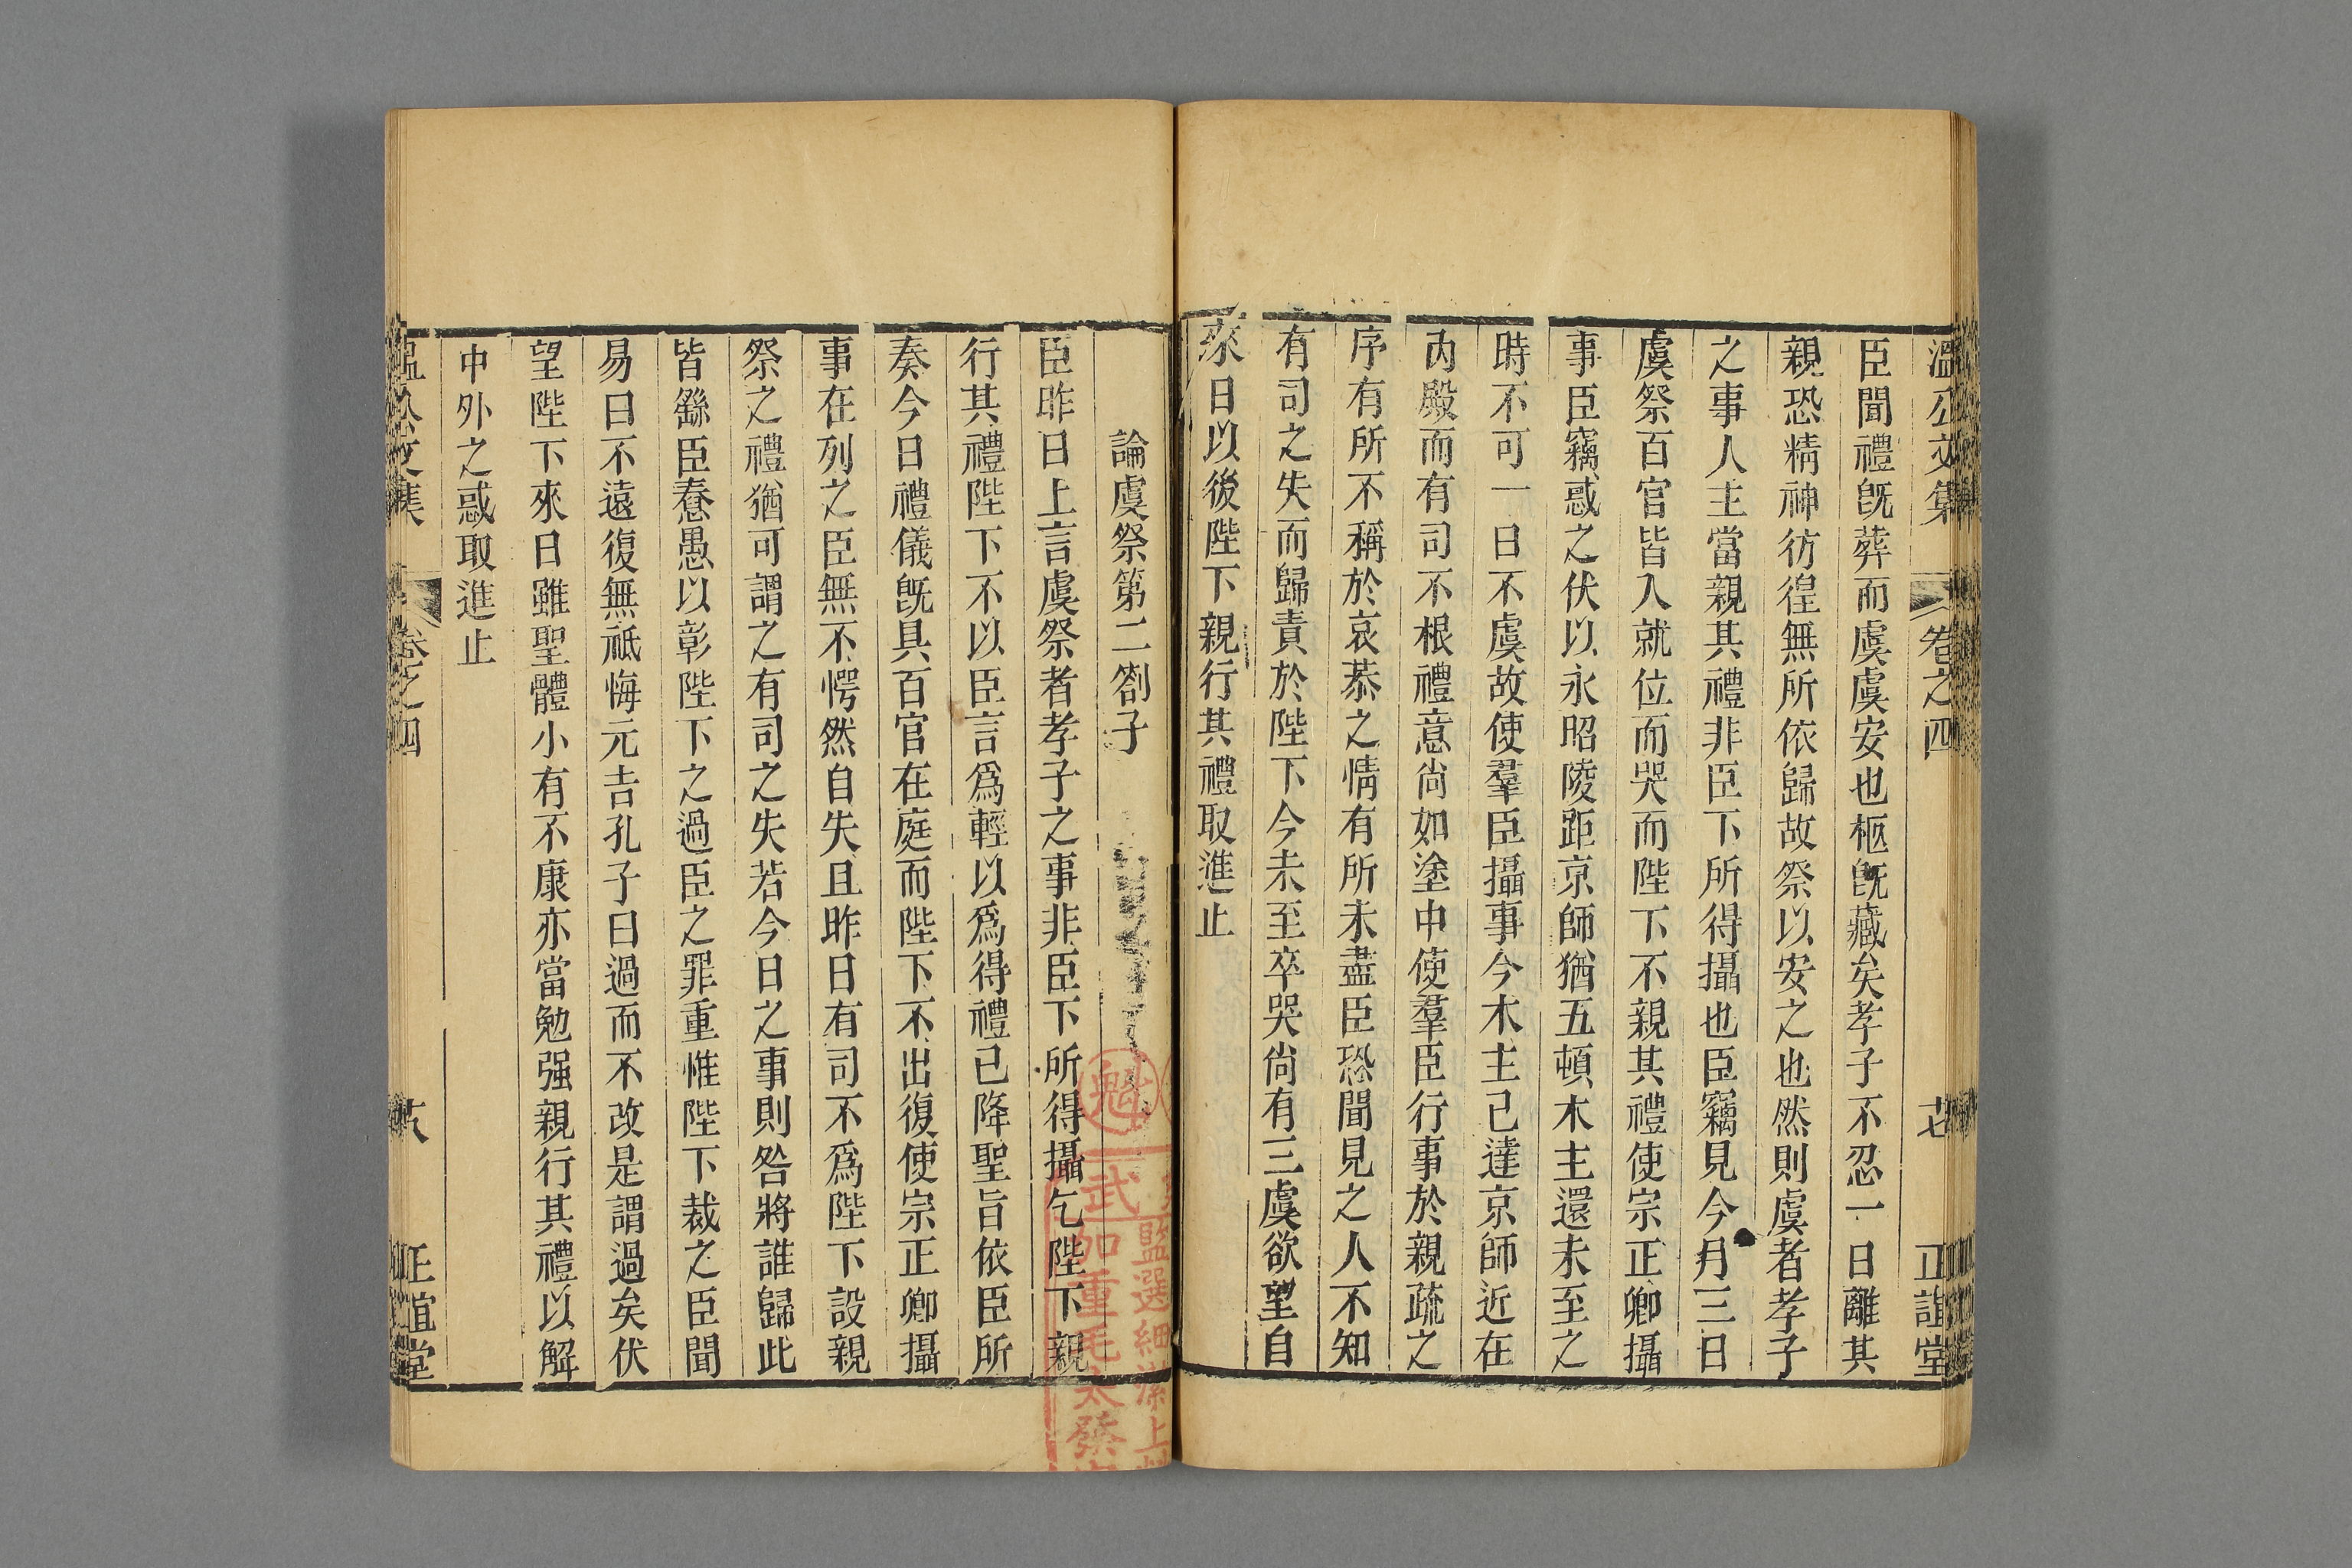 溫公文集 卷之四 七 正誼堂
臣聞禮旣葬而虞虞安也柩旣藏矣孝子不忍一日離其
親恐精神彷徨無所依歸故祭以安之也然則虞者孝子
之事人主當親其禮非臣下所得攝也臣竊見今月三日
虞祭百官皆入就位而哭而陛下不親其禮使宗正卿攝
事臣竊惑之伏以永昭陵距京師猶五頓木主還未至之
時不可一日不虞故使羣臣攝事今木主已達京師近在
內殿而有司不根禮意尚如塗中使羣臣行事於親疏之
序有所不稱於哀慕之情有所未盡臣恐聞見之人不知
有司之失而歸責於陛下今未至卒哭尚有三虞欲望自
來日以後陛下親行其禮取進止
論虞祭第二劄子
臣昨日上言虞祭者孝子之事非臣下所得攝乞陛下親
行其禮陛下不以臣言爲輕以爲得禮已降聖旨依臣所
奏今日禮儀旣具百官在庭而陛下不出復使宗正卿攝
事在列之臣無不愕然自失且昨日有司不爲陛下設親
祭之禮猶可謂之有司之失若今日之事則咎將誰歸此
皆繇臣惷愚以彰陛下之過臣之罪重惟陛下裁之臣聞
易曰不遠復無祗悔元吉孔子曰過而不改是謂過矣伏
望陛下來日雖聖體小有不康亦當勉强親行其禮以解
中外之惑取進止
溫公文集 卷之四 正誼堂
魁
武
監選細潔上
加重毛太